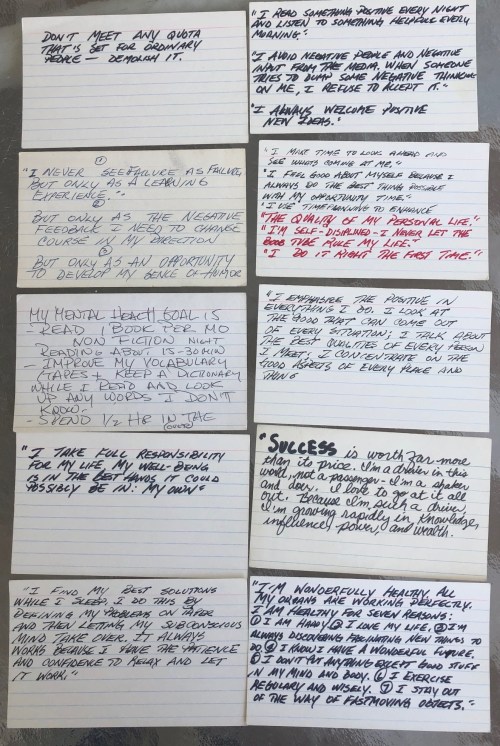 DON'T MEET ANY QUOTA
THAT'S SET FOR ORDINARY
PEOPLE — DEMOLISH IT.
"I READ SOMETHING POSITIVE EVERY NIGHT
AND LISTEN TO SOMETHING HELPFUL EVERY
MORNING."
"I AVOID NEGATIVE PEOPLE AND NEGATIVE
INPUT FROM THE MEDIA. WHEN SOMEONE
TRIES TO DUMP SOME NEGATIVE THINKING
ON ME, I REFUSE TO ACCEPT IT."
"I ALWAYS WELCOME POSITIVE
NEW IDEAS."
①
"I NEVER SEE FAILURE AS FAILURE,
BUT ONLY AS A LEARNING
EXPERIENCE."
②
BUT ONLY AS THE NEGATIVE
FEEDBACK I NEED TO CHANGE
COURSE IN MY DIRECTION
③
BUT ONLY AS AN OPPORTUNITY
TO DEVELOP MY SENCE OF HUMOR
"I MAKE TIME TO LOOK AHEAD AND
SEE WHATS COMING AT ME."
"I FEEL GOOD ABOUT MYSELF BECAUSE I
ALWAYS DO THE BEST THING POSSIBLE
WITH MY OPPORTUNITY TIME."
"I USE TIME PLANNING TO ENHANCE
"THE QUALITY OF MY PERSONAL LIFE."
"I'M SELF-DISIPLINED - I NEVER LET THE
BOOB TUBE RULE MY LIFE."
"I DO IT RIGHT THE FIRST TIME."
MY MENTAL HEALTH GOAL IS
- READ 1 BOOK PER MO
NON FICTION NIGHT
READING ABOUT 15-30 MIN
- IMPROVE MY VOCABULARY
TAPES & KEEP A DICTIONARY
WHILE I READ AND LOOK
UP ANY WORDS I DON'T
KNOW.
- SPEND 1/2 HR IN THE
"I EMPHASIZE THE POSITIVE IN
EVERYTHING I DO. I LOOK AT
THE GOOD THAT CAN COME OUT
OF EVERY SITUATION; I TALK ABOUT
THE BEST QUALITIES OF EVERY PERSON
I MEET; I CONCENTRATE ON THE
GOOD ASPECTS OF EVERY PLACE AND
THING
"I TAKE FULL RESPONSIBILITY
FOR MY LIFE. MY WELL-BEING
IS IN THE BEST HANDS IT COULD
POSSIBLY BE IN: MY OWN"
"SUCCESS is worth far more
than its price. I'm a driver in this
world, not a passenger - I'm a shaker
and doer. I love to go at it all
out. Because I'm such a driver,
I'm growing rapidly in knowledge,
influence, power, and wealth.
"I FIND MY BEST SOLUTIONS
WHILE I SLEEP. I DO THIS BY
DEFINING MY PROBLEMS ON PAPER
AND THEN LETTING MY SUBCONSCIOUS
MIND TAKE OVER. IT ALWAYS
WORKS BECAUSE I HAVE THE PATIENCE
AND CONFIDENCE TO RELAX AND LET
IT WORK."
"I'M WONDERFULLY HEALTHY. ALL
MY ORGANS ARE WORKING PERFECTLY.
I AM HEALTHY FOR SEVEN REASONS:
① I AM HAPPY ② I LOVE MY LIFE. ③ I'M
ALWAYS DISCOVERING FASCINATING NEW THINGS TO
DO. ④ I KNOW I HAVE A WONDERFUL FUTURE.
⑤ I DON'T PUT ANYTHING EXCEPT GOOD STUFF
IN MY MIND AND BODY. ⑥ I EXERCISE
REGULARY AND WISELY. ⑦ I STAY OUT
OF THE WAY OF FASTMOVING OBJECTS."